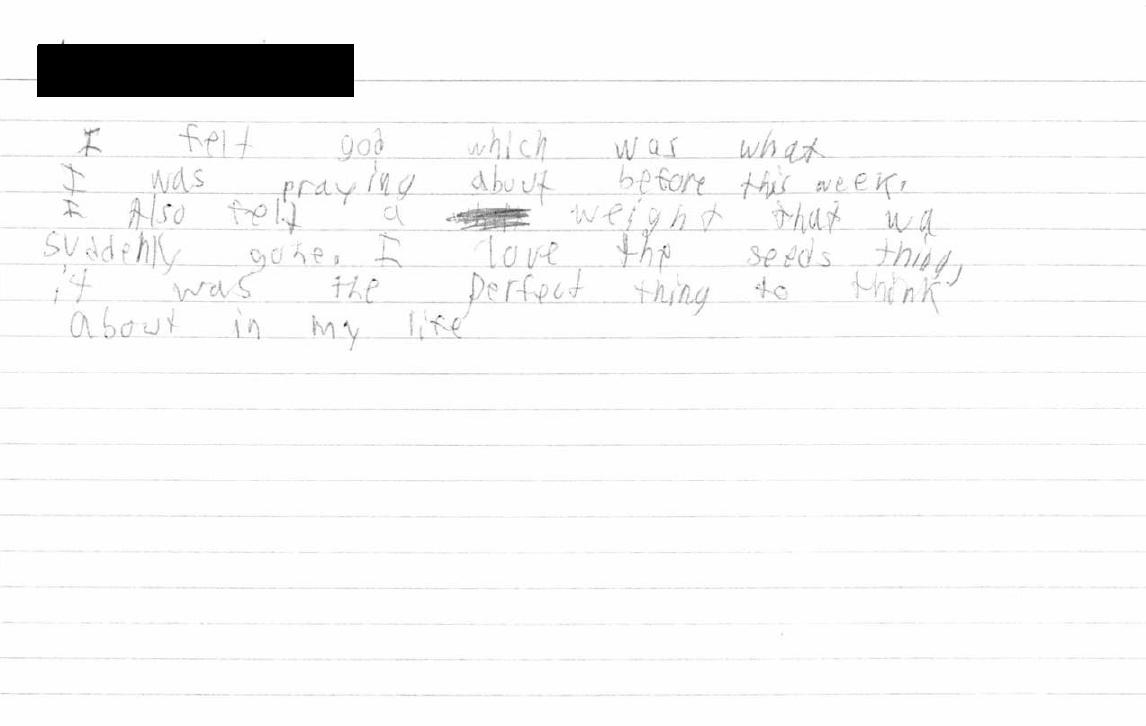 I felt god which was what
I was praying about before this week.
I Also felt a weight that wa
suddenly gone. I love the seeds thing,
it was the perfect thing to think
about in my life